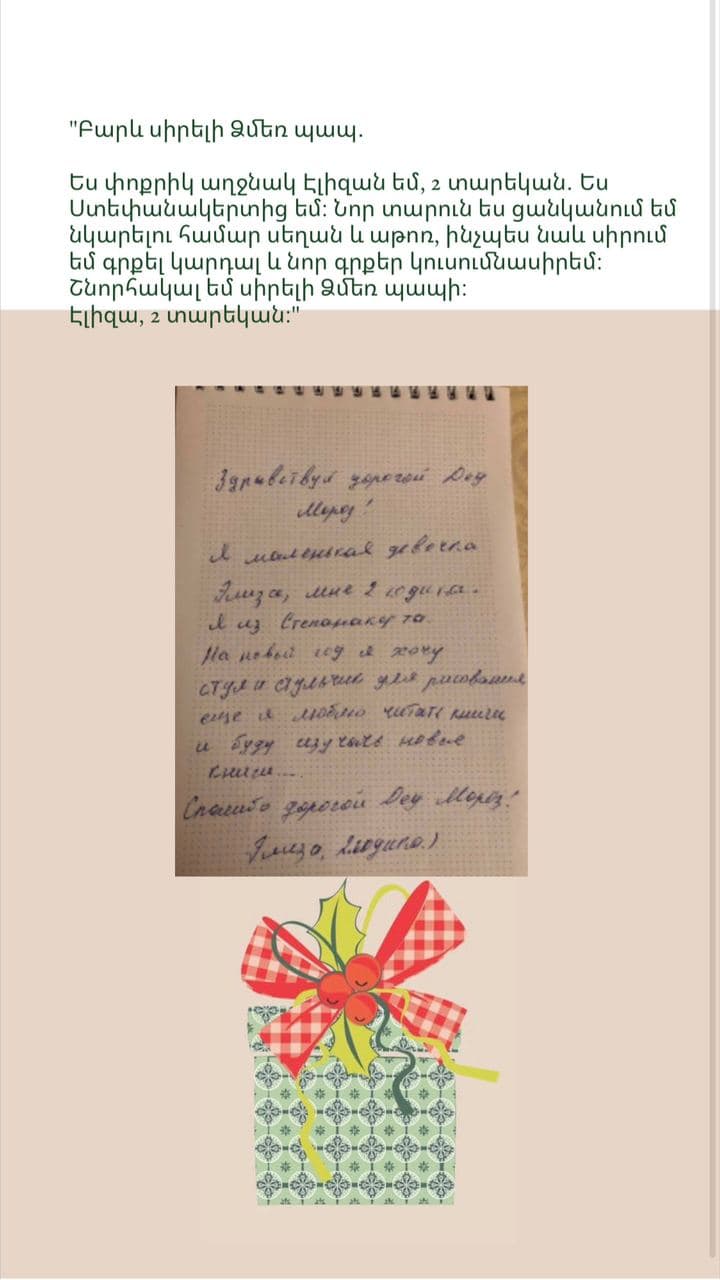 "Բարև սիրելի Ձմեռ պապ.
Ես փոքրիկ աղջնակ Էլիզան եմ, 2 տարեկան. Ես
Ստեփանակերտից եմ: Նոր տարուն ես ցանկանում եմ
նկարելու համար սեղան և աթոռ, ինչպես նաև սիրում
եմ գրքել կարդալ և նոր գրքեր կուսումնասիրեմ:
Շնորհակալ եմ սիրելի Ձմեռ պապի:
Էլիզա, 2 տարեկան:"
Здравствуй дорогой Дед
Мороз!
Я маленькая девочка
Элиза, мне 2 годика.
Я из Степанакерта.
На новый год я хочу
стул и стульчик для рисования
еще я люблю читать книги
и буду изучать новые
книги....
Спасибо дорогой Дед Мороз!
Элиза, 2годика.)